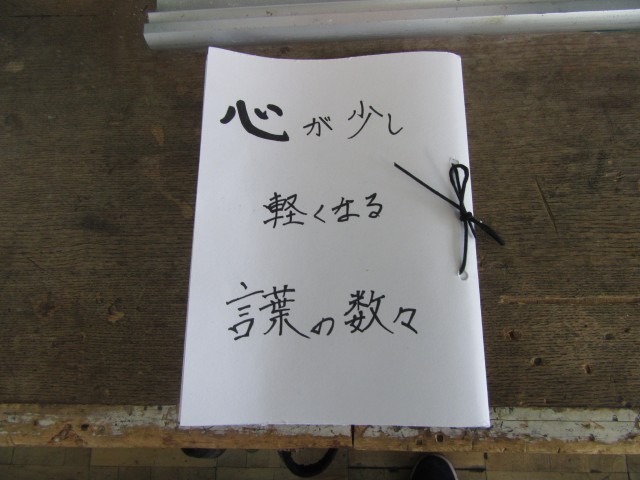 心が少し
軽くなる
言葉の数々